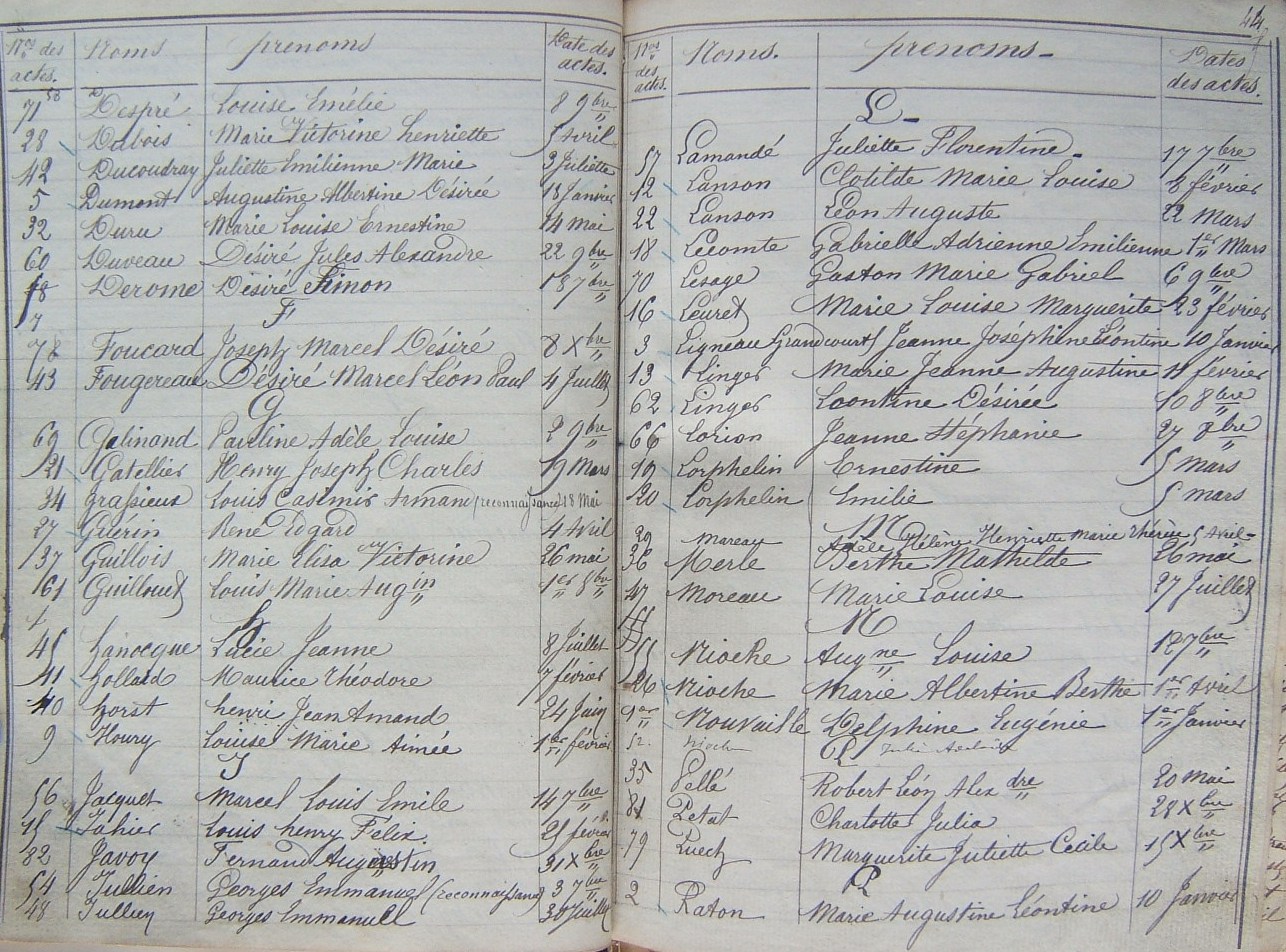 Nos des actes. Noms prenoms Date des actes.
71 58 Despré Louise Emélie 8 9bre
28 Dubois Marie Victorine henriette 5 Avril
42 Ducoudray Juliette Emilienne Marie 3 Juliette
5 Dumont Augustine Albertine Désirée 18 Janvier
32 Duru Marie Louise Ernestine 14 Mai
60 Duveau Désiré Jules Alexandre 22 9bre
Derome Désiré Simon 7bre
F
78 Foucard Joseph Marcel Désiré 8 Xbre
43 Fougereau Désiré Marcel Léon Paul 4 Juillet
G
69 Galinand Pauline Adèle Louise 2 9bre
21 Gatellier Henry Joseph Charles 19 Mars
34 Grassieux Louis Casimir Armand (reconnaissance) 18 Mai
27 Guérin René Edgard 4 Avril
137 Guillois Marie Elisa Victorine 26 mai
161 Guillout Louis Marie Augin 1er 8bre
H
45 hanocque Lucie Jeanne 8 Juillet
41 hollard Maurice Théodore 7 février
40 horst henri Jean Amand 24 Juin
9 Houry Louise Marie Aimée 1er février
J
56 Jacquet Marcel Louis Emile 14 7bre
15 Jahier Louis henry Félix. 25 février
82 Javoy Fernand Augustin 31 Xbre
54 Jullien Georges Emmanuel (reconnaissance) 3 7bre
48 Jullien Georges Emmanuel 30 Juillet
44
Nos des actes. Noms. prenoms - Dates des actes.
L -
57 Lamandé Juliette Florentine - 17 7bre
12 Lanson Clotilde Marie Louise 8 février
22 Lanson Léon Auguste 22 Mars
18 Lecomte Gabrielle Adrienne Emilienne 1er Mars
70 Lesage Gaston Marie Gabriel 6 9bre
16 Leuret Marie Louise Marguerite 23 février
3 Ligneau Grandcourt Jeanne Joséphine Léontine 10 Janvier
13 Linger Marie Jeanne Augustine 11 février
62 Linger Leontine Désirée 10 8bre
66 Lorion Jeanne Stéphanie 27 8bre
19 Lorphelin Ernestine 5 Mars
20 Lorphelin Emilie 5 mars
M
29 mareau Adèle Hélène Henriette Marie Thérèse 5 Avril -
36 Merle Berthe Mathilde 26 mai
47 Moreau Marie Louise 27 Juillet
N
55 Nioche Augne Louise 12 7bre
26 Nioche Marie Albertine Berthe 1er Avril
1er Nouvaille Delphine Eugénie 1er Janvier
52. Nioche Julie
P
35 Pellé Robert Léon Alexdre 20 Mai
81 Petat Charlotte Julia 28 Xbre
79 Puech Marguerite Juliette Cecile 15 Xbre
R
2 Raton Marie Augustine Léontine 10 Janvier